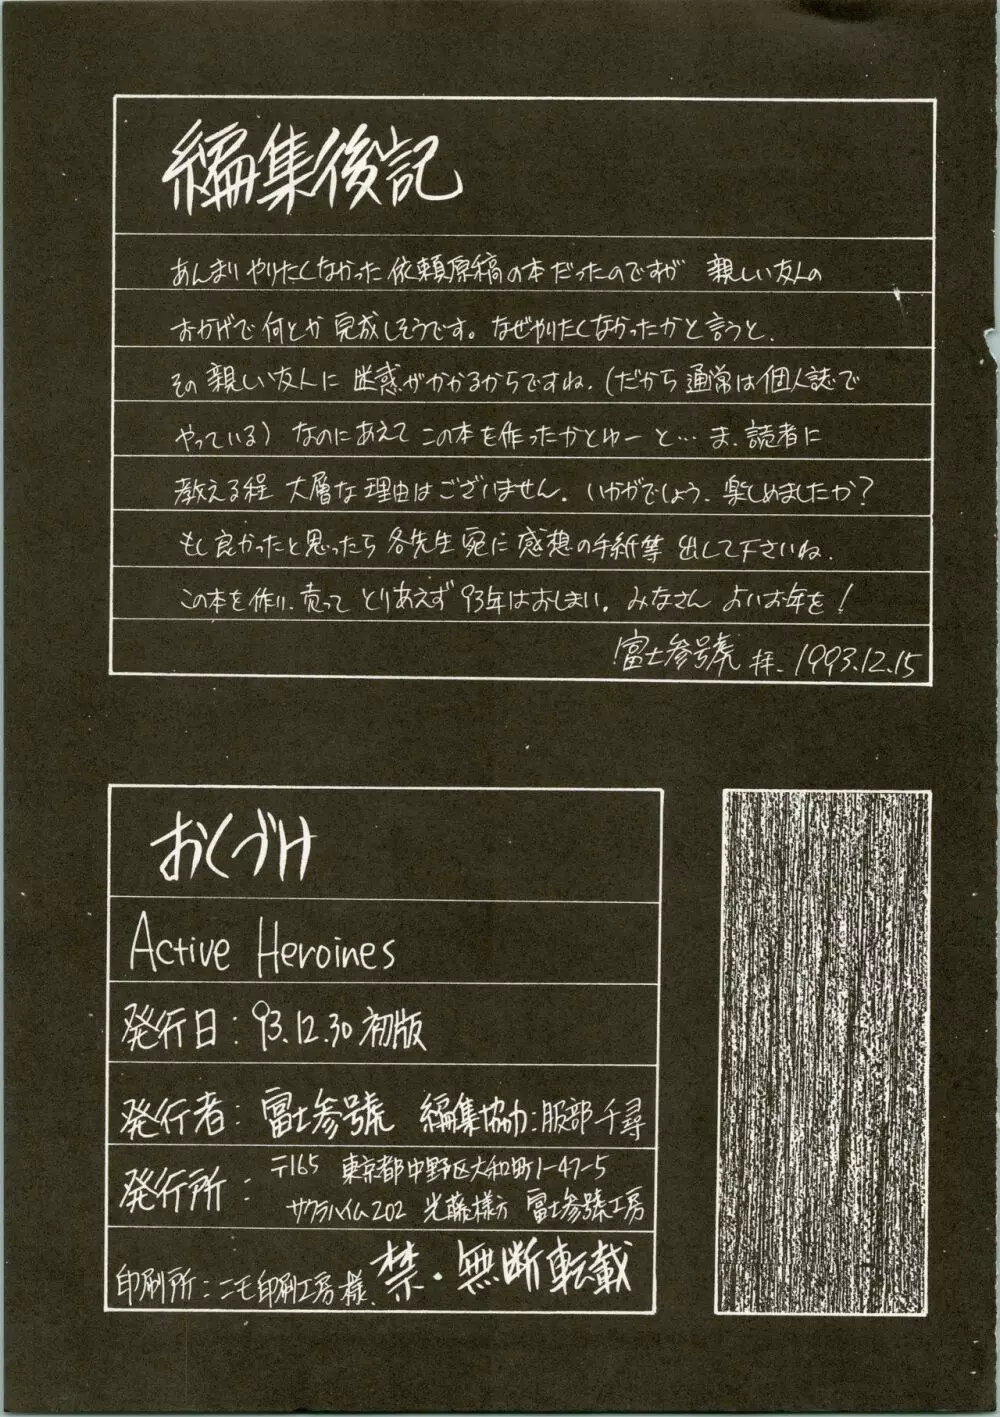 編集後記
あんまりやりたくなかった依頼原稿の本だったのですが 親しい友人の
おかげで何とか完成しそうです。なぜやりたくなかったかと言うと、
その親しい友人に迷惑がかかるからですね、(だから通常は個人誌で
やっている) なのにあえてこの本を作ったかとゆーと… ま、読者に
教える程大層な理由はございません。いかがでしょう、楽しめましたか?
もし良かったと思ったら各先生宛に感想の手紙等出して下さいね、
この本を作り、売って とりあえず93年はおしまい。みなさん よいお年を!
富士参號 拝、1993.12.15
おくづけ
Active Heroines
発行日:93.12.30 初版
発行者:富士参號 編集協力:服部千尋
発行所:〒165 東京都中野区大和町1-47-5
サクラハイム202 光藤様方 富士参號工房
印刷所:ニモ印刷工房様、禁・無断転載